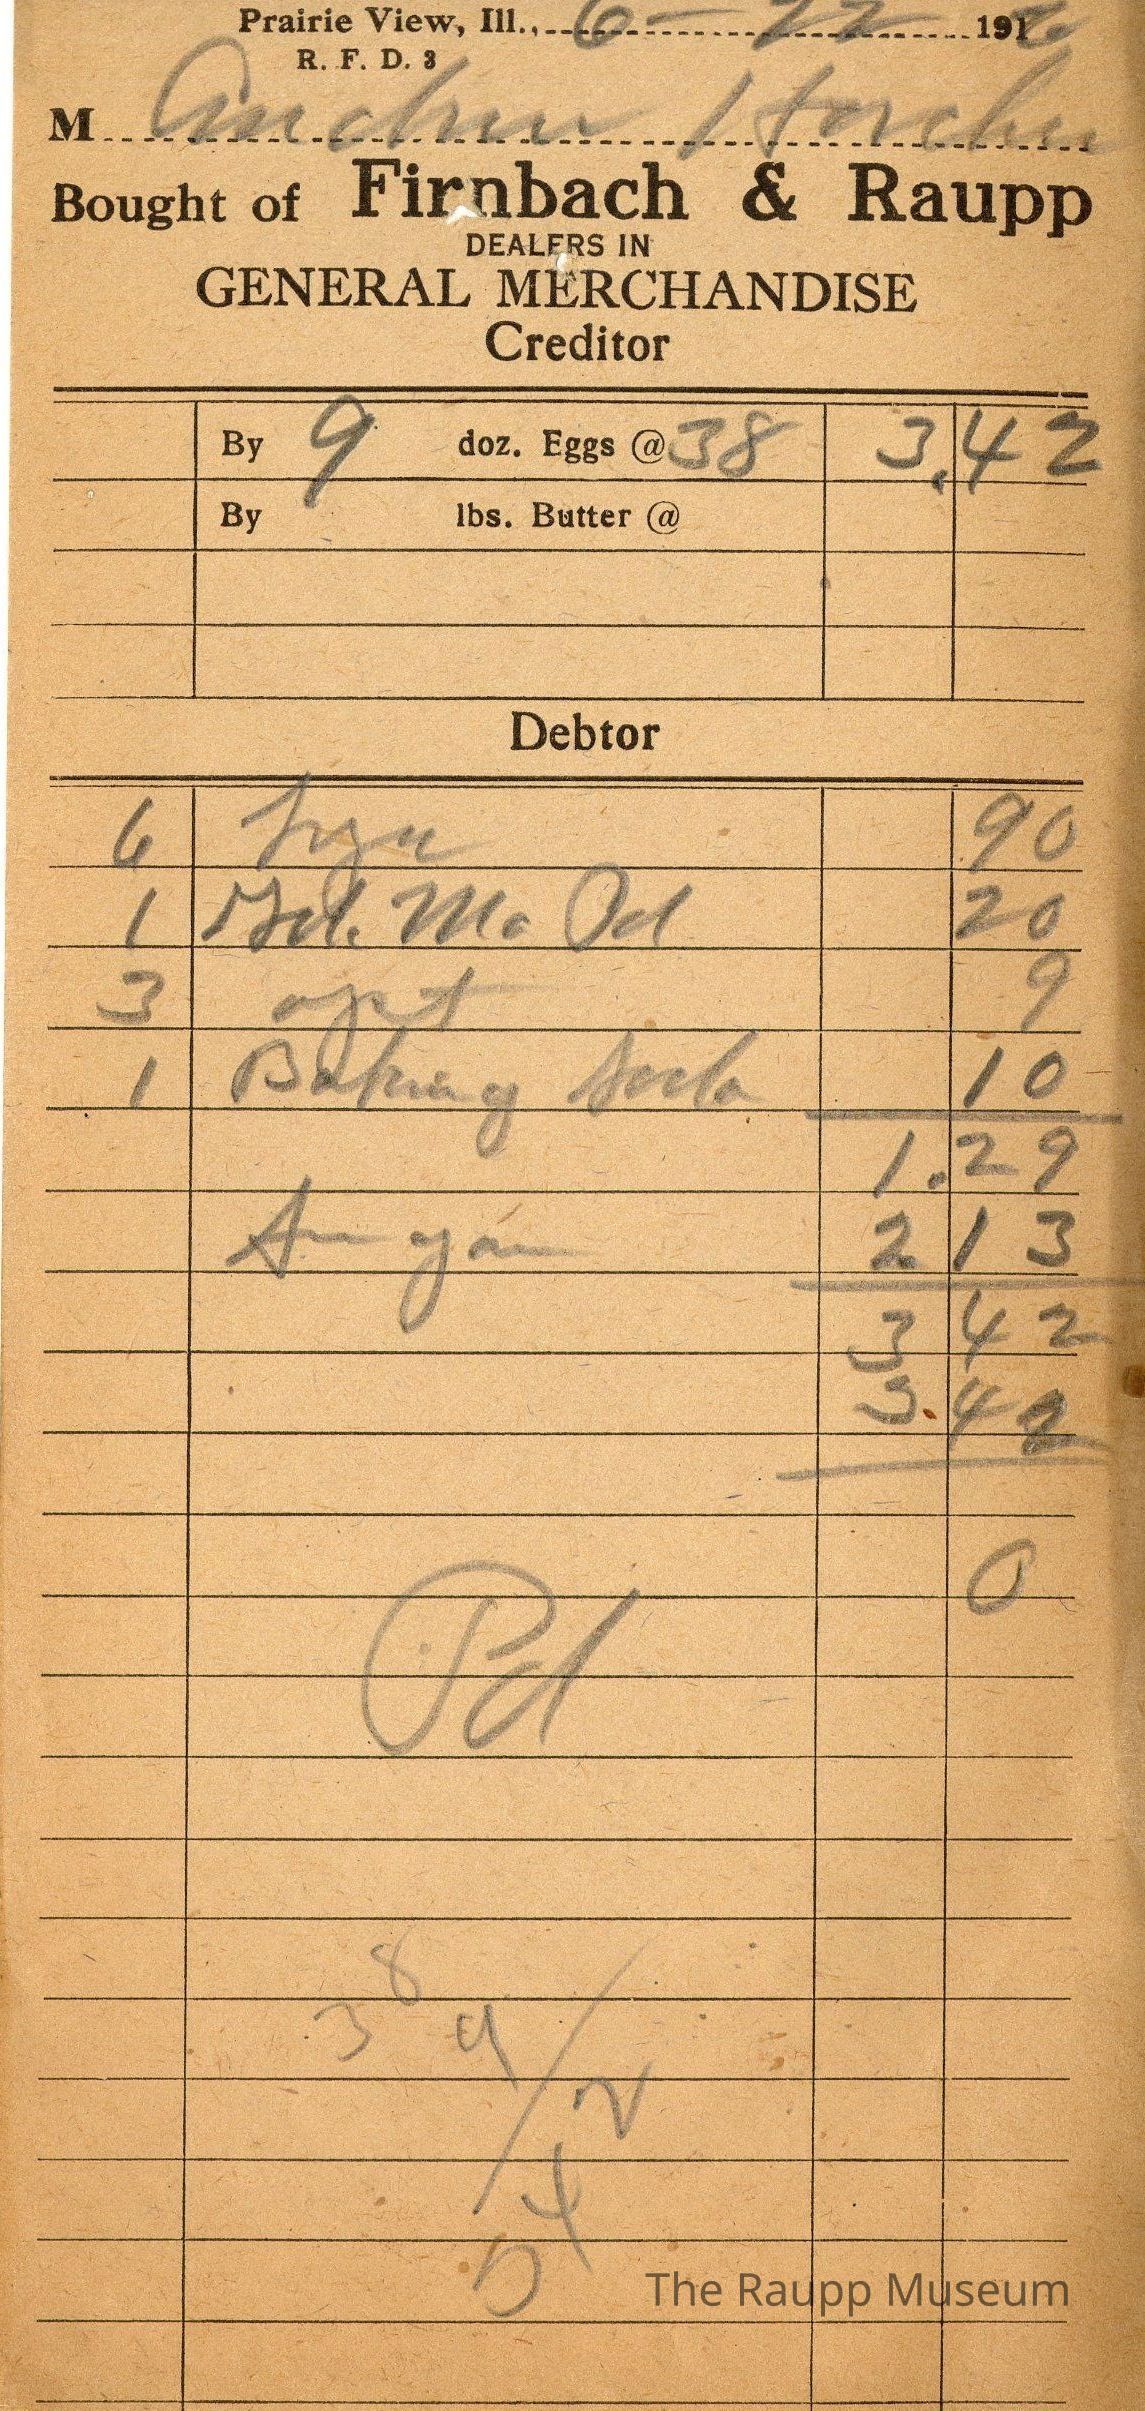 Prairie View, Ill., 6-22 191
R. F. D. 3
M Andrew
Bought of Firnbach & Raupp
DEALERS IN
GENERAL MERCHANDISE
Creditor
By 9 doz. Eggs @ 38 3.42
By lbs. Butter @
Debtor
6 90
1 20
3 9
1 Baking Soda 10
1.29
2 13
3 42
3.42
0
Pd
38 9
2
4
The Raupp Museum